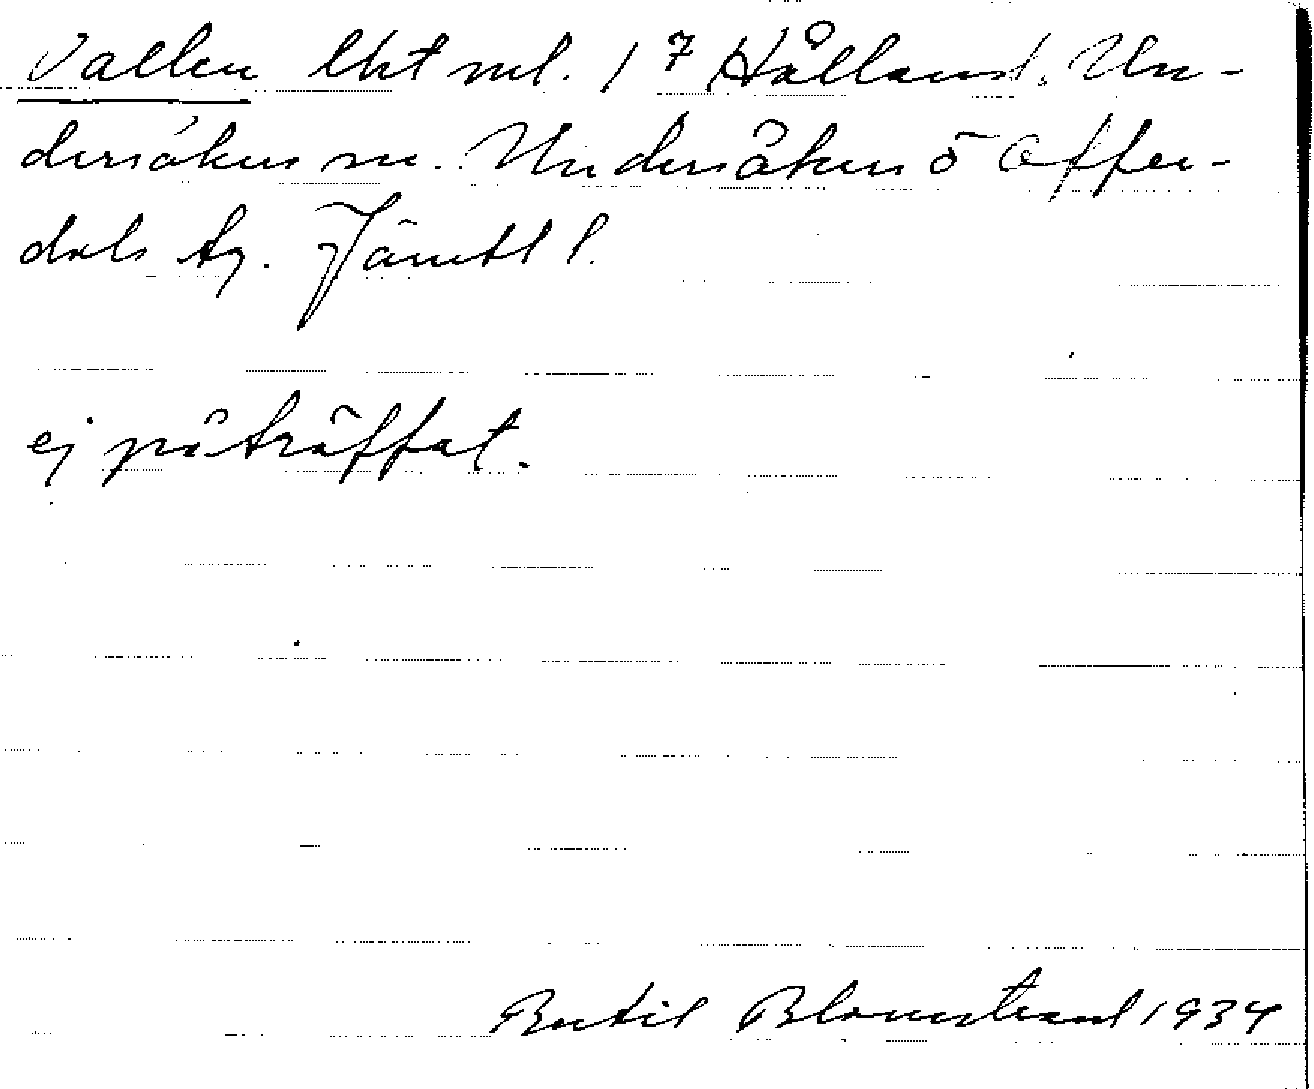 Vallen lht ml. 1⁷ Hålland. Un-
dersåkers sn. Undersåkers o Offer-
dals tg. Jämtl l.
ej påträffat.
Bertil Blomstrand 1934